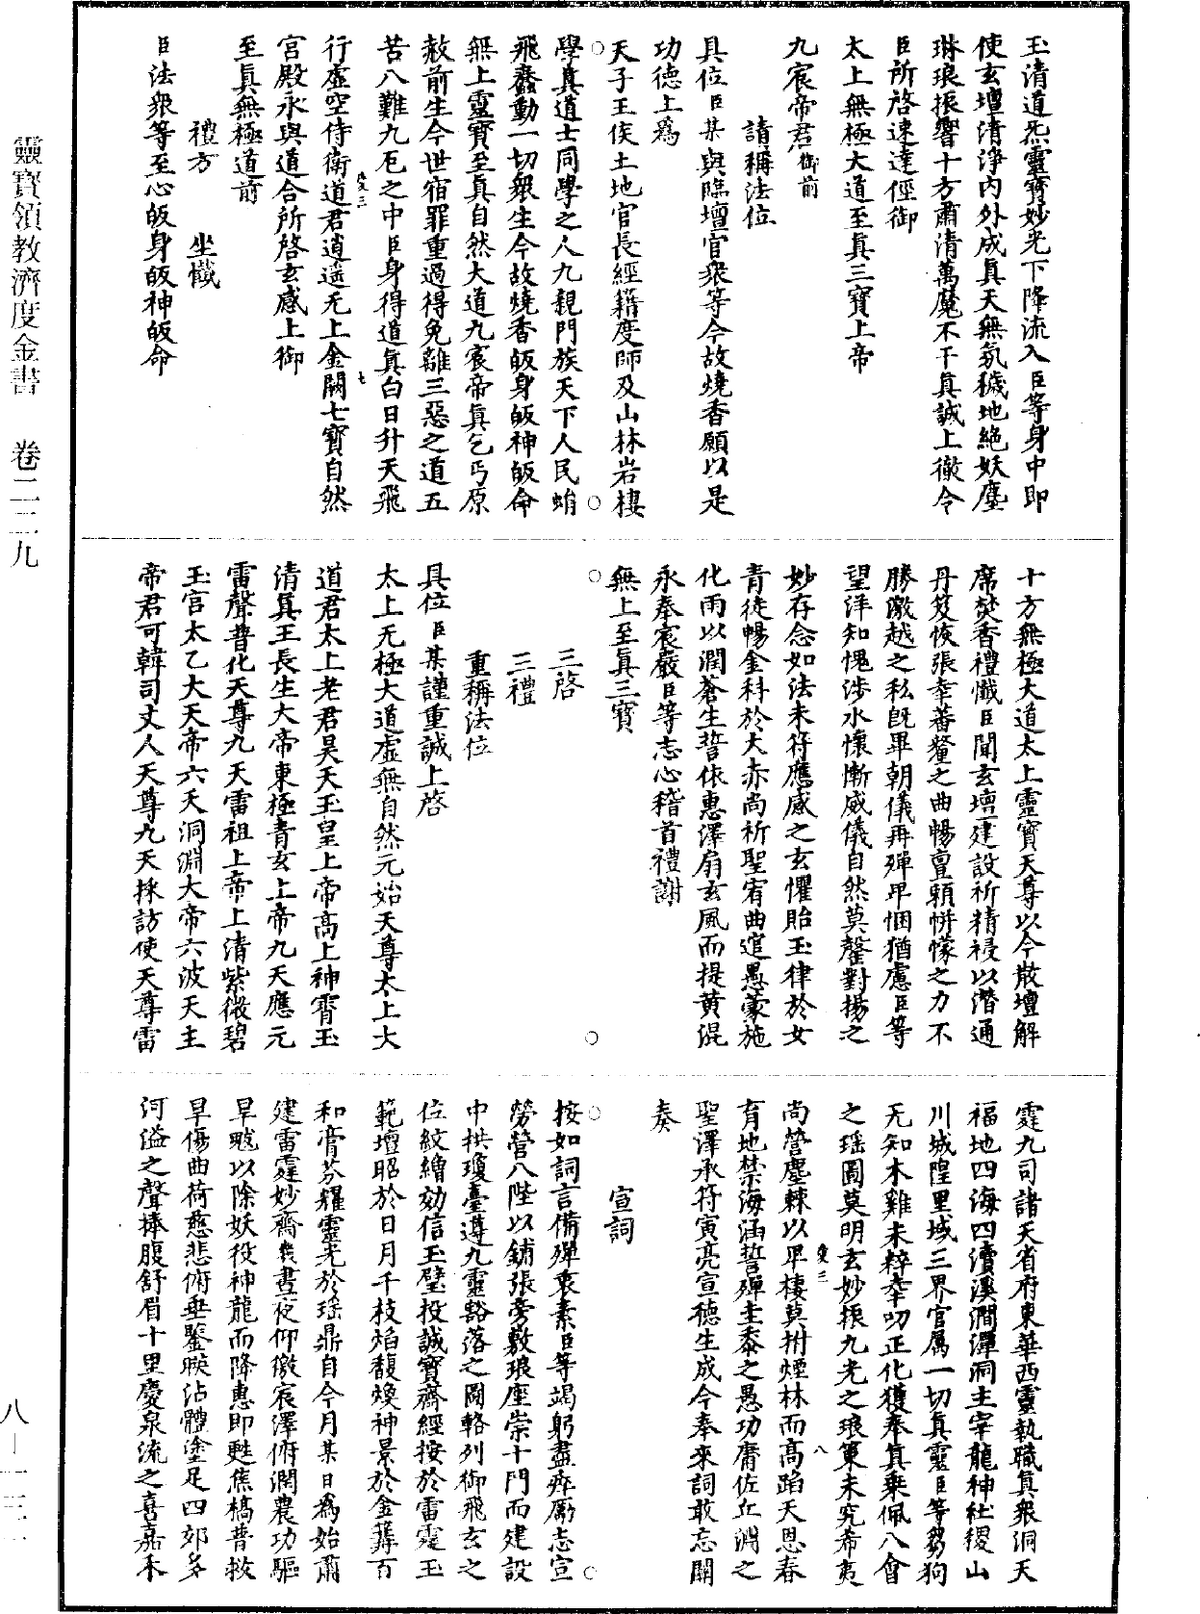 玉清道炁靈寶妙光下降流入臣等身中即
使玄壇清淨內外成真天無氛穢地絕妖塵
琳琅振響十方肅清萬魔不干真誠上徹令
臣所啓速達徑御
太上無極大道至真三寶上帝
九宸帝君御前
請稱法位
具位臣某與臨壇官衆等今故燒香願以是
功德上爲
天子王侯土地官長經籍度師及山林岩棲
學真道士同學之人九親門族天下人民蛸
飛蠢動一切衆生今故燒香皈身皈神皈命
無上靈寶至真自然大道九宸帝真乞丐原
赦前生今世宿罪重過得免離三惡之道五
苦八難九厄之中臣身得道真白日升天飛
行虛空侍衛道君逍遥无上金闕七寶自然
宮殿永與道合所啓玄感上御
至真無極道前
禮方 坐懺
臣法衆等至心皈身皈神皈命
十方無極大道太上靈寶天尊以今散壇解
席焚香禮懺臣聞玄壇建設祈精祲以潛通
丹笈恢張牽蕃釐之曲暢亶賴帡幪之力不
勝激越之私既畢朝儀再殫卑悃猶慮臣等
望洋知愧涉水懷慚威儀自然莫罄對揚之
妙存念如法未符應感之玄懼貽玉律於女
青徒暢金科於大赤尚祈聖宥曲逭愚蒙施
化雨以潤蒼生誓依惠澤扇玄風而提黄混
永奉宸嚴臣等志心稽首禮謝
無上至真三寶
三啓
三禮
重稱法位
具位臣某謹重誠上啓
太上无極大道虛無自然元始天尊太上大
道君太上老君昊天玉皇上帝高上神霄玉
清真王長生大帝東極青玄上帝九天應元
雷聲普化天尊九天雷祖上帝上清紫微碧
玉宮太乙大天帝六天洞淵大帝六波天主
帝君可韓司丈人天尊九天採訪使天尊雷
霆九司諸天省府東華西靈執職真衆洞天
福地四海四瀆溪澗潭洞主宰龍神社稷山
川城隍里域三界官屬一切真靈臣等芻狗
无知木雞未粹牽叨正化獲奉真乘佩八會
之瑶圖莫明玄妙振九光之琅筞未究希夷
尚營塵棘以卑棲莫拊煙林而高蹈天恩春
育地禁海涵誓殫圭黍之愚功庸佐丘淵之
聖澤承符寅亮宣德生成今奉來詞敢忘關
奏
宣詞
按如詞言備殫衷素臣等竭躬盡瘁厲志宣
勞營八陛以鋪張旁敷琅座崇十門而建設
中拱瓊臺遵九靈豁落之圖輅列御飛玄之
位紋繒効信玉璧投誠寶齋經按於雷霆玉
範壇昭於日月千枝焰馥煥神景於金籜百
和膏芬耀靈光於瑶鼎自今月某日為始肅
建雷霆妙齋幾晝夜仰徼宸澤俯潤農功驅
旱魃以除妖役神龍而降惠即甦焦槁普救
旱傷曲荷慈悲俯垂鑒映沾體塗足四郊多
河溢之聲捧腹舒眉十里慶泉流之喜嘉禾
靈寶領教濟度金書 卷二二九
八—一三二